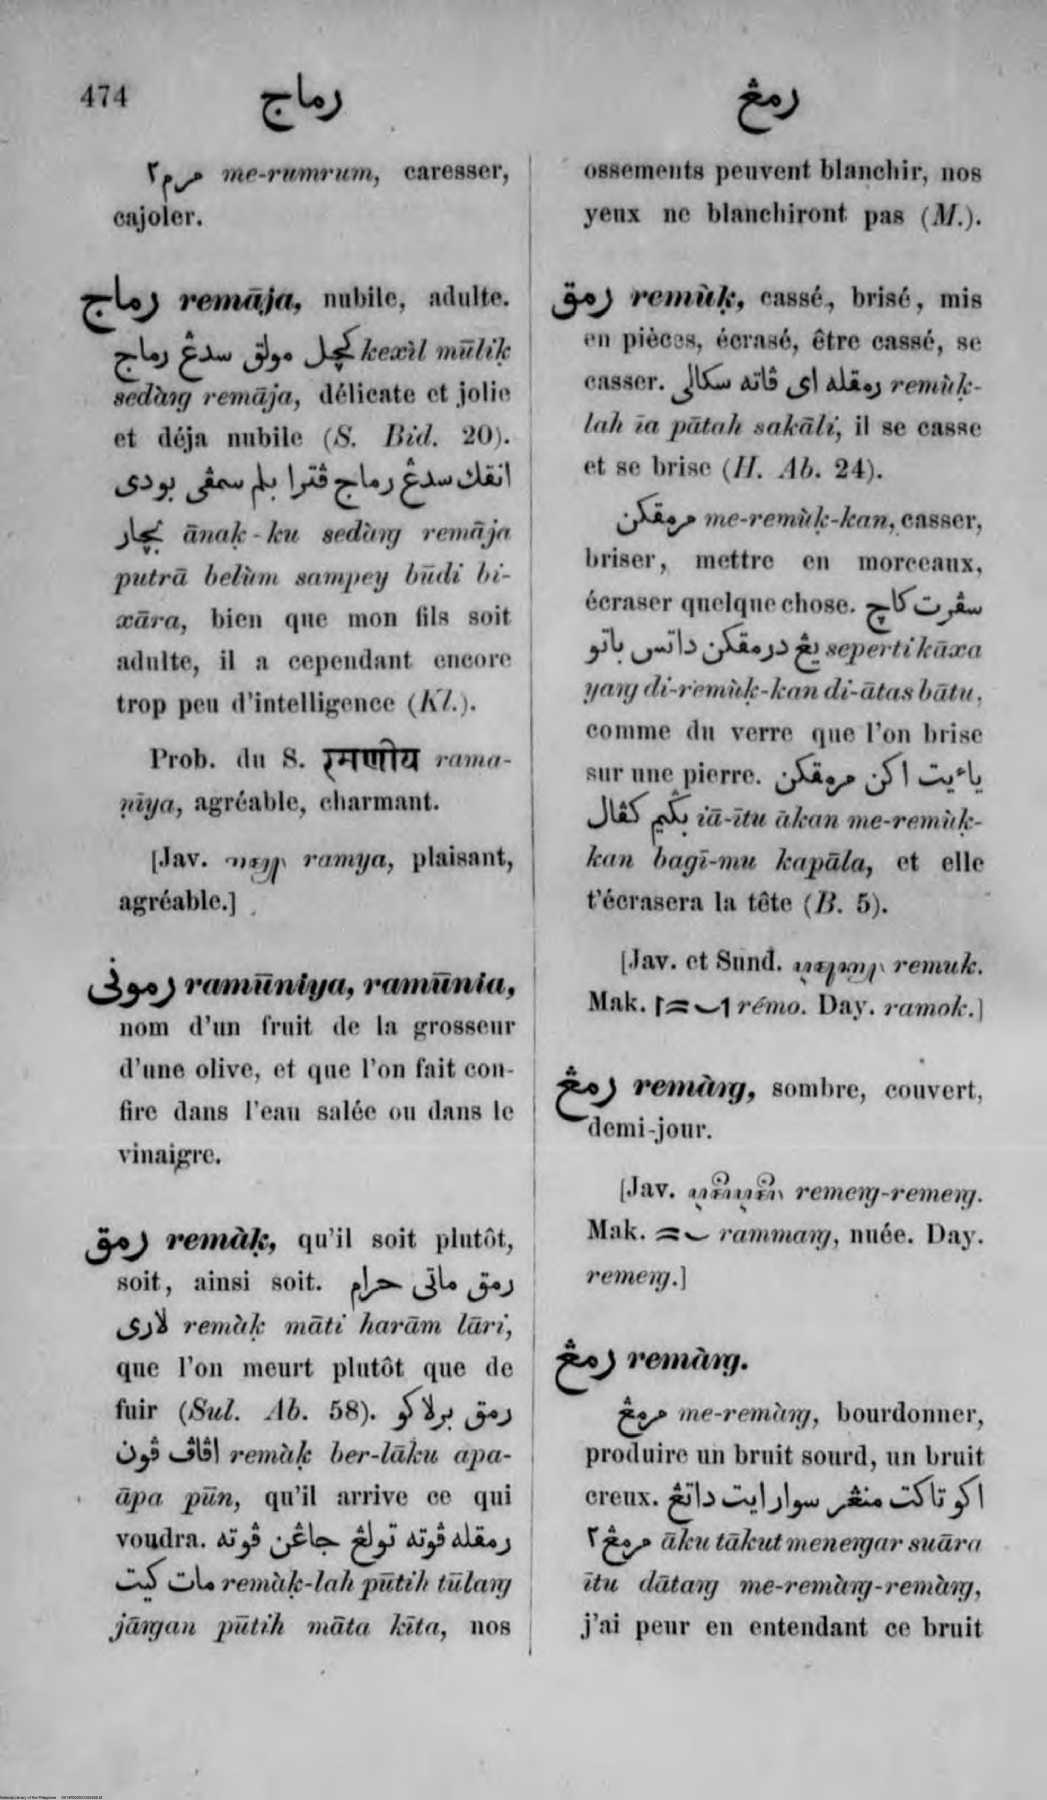 474
رماج
رمڠ
مرم٢ me-rumrum, caresser,
cajoler.
رماج remāja, nubile, adulte.
کچل مولق سدڠ رماج kexìl mūliḳ
sedàrg remāja, délicate et jolie
et déja nubile (S. Bid. 20).
انقك سدڠ رماج ڤترا بلم سمڤى بودى
بچار ānaḳ-ku sedàrg remāja
putrā belùm sampey būdi bi-
xāra, bien que mon fils soit
adulte, il a cependant encore
trop peu d'intelligence (Kl.).
Prob. du S. रमणीय rama-
ṇīya, agréable, charmant.
[Jav. ramya, plaisant,
agréable.]
رمونى ramūniya, ramūnia,
nom d'un fruit de la grosseur
d'une olive, et que l'on fait con-
fire dans l'eau salée ou dans le
vinaigre.
رمق remàḳ, qu'il soit plutôt,
soit, ainsi soit. رمق ماتى حرام
لارى remàḳ māti harām lāri,
que l'on meurt plutôt que de
fuir (Sul. Ab. 58). رمق برلاکو
اڤاڤ ڤون remàḳ ber-lāku apa-
āpa pūn, qu'il arrive ce qui
voudra. رمقله ڤوته تولڠ جاڠن ڤوته
مات کيت remàḳ-lah pūtih tūlarg
jārgan pūtih māta kīta, nos
ossements peuvent blanchir, nos
yeux ne blanchiront pas (M.).
رمق remùḳ, cassé, brisé, mis
en pièces, écrasé, être cassé, se
casser. رمقله اى ڤاته سکالى remùḳ-
lah īa pātah sakāli, il se casse
et se brise (H. Ab. 24).
مرمقکن me-remùḳ-kan, casser,
briser, mettre en morceaux,
écraser quelque chose. سڤرت کاچ
يڠ درمقکن داتس باتو seperti kāxa
yarg di-remùḳ-kan di-ātas bātu,
comme du verre que l'on brise
sur une pierre. ياءيت اکن مرمقکن
بݢيم کڤال iā-ītu ākan me-remùḳ-
kan bagī-mu kapāla, et elle
t'écrasera la tête (B. 5).
[Jav. et Sund. remuk.
Mak. rémo. Day. ramok.]
رمڠ remàrg, sombre, couvert,
demi-jour.
[Jav. remerg-remerg.
Mak. rammarg, nuée. Day.
remerg.]
رمڠ remàrg.
مرمڠ me-remàrg, bourdonner,
produire un bruit sourd, un bruit
creux. اکو تاکت منڠر سوار ايت داتڠ
مرمڠ٢ āku tākut menergar suāra
ītu dātarg me-remàrg-remàrg,
j'ai peur en entendant ce bruit